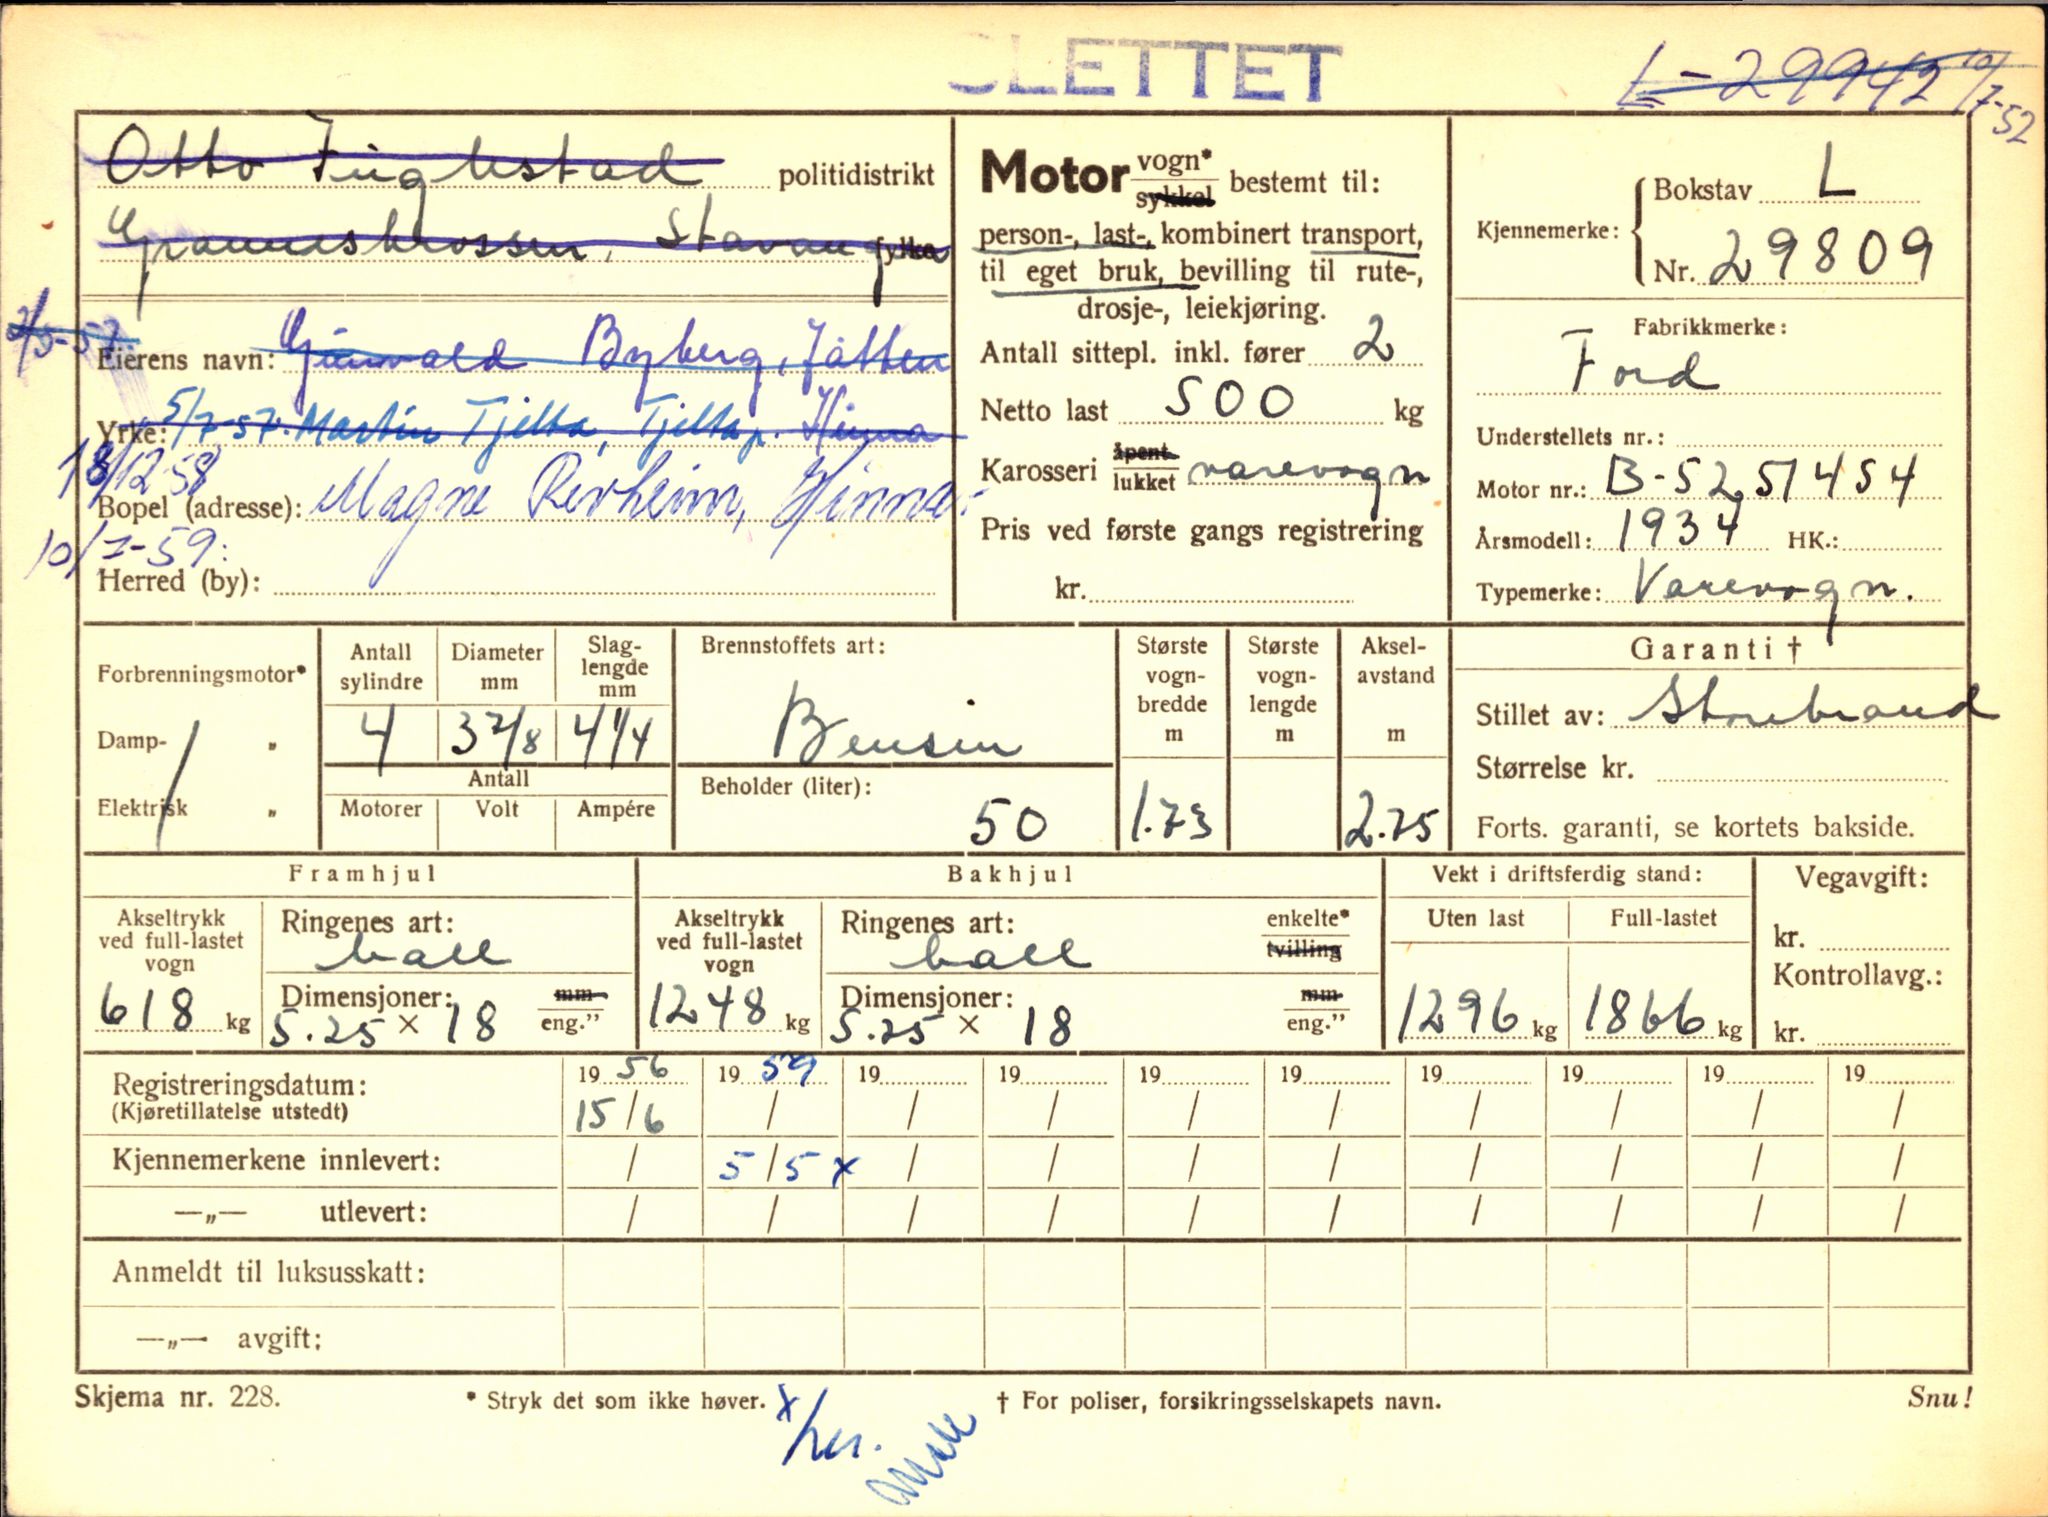 SLETTET
L-29942 10/7-52
Otto politidistrikt
Stavanger fylke
2/5-57
Eierens navn: Gunvald Byberg, Jåtten
Yrke: 5/7-57. Martin Tjelta, Tjelta p. Hinna
18/12-58
Bopel (adresse): Magne Revheim, Hinna.
10/2-59:
Herred (by):
Motor vogn* sykkel bestemt til:
person-, last-, kombinert transport,
til eget bruk, bevilling til rute-,
drosje-, leiekjøring.
Antall sittepl. inkl. fører 2
Netto last 500 kg
Karosseri åpent lukket varevogn
Pris ved første gangs registrering
kr.
Kjennemerke: Bokstav L
Nr. 29809
Fabrikkmerke:
Ford
Understellets nr.:
Motor nr.: B-5251454
Årsmodell: 1934 HK.:
Typemerke: Varevogn.
Forbrenningsmotor*
Damp- „
Elektrisk „
Antall sylindre 4
Diameter mm 3 7/8
Slaglengde mm 4 1/4
Antall
Motorer Volt Ampére
Brennstoffets art:
Bensin
Beholder (liter):
50
Største vognbredde m 1.73
Største vognlengde m
Akselavstand m 2.75
Garanti †
Stillet av: Storebrand
Størrelse kr.
Forts. garanti, se kortets bakside.
Framhjul
Akseltrykk ved full-lastet vogn 618 kg
Ringenes art:
ball
Dimensjoner: mm
5.25 × 18 eng.”
Bakhjul
Akseltrykk ved full-lastet vogn 1248 kg
Ringenes art: enkelte* tvilling
ball
Dimensjoner: mm
5.25 × 18 eng.”
Vekt i driftsferdig stand:
Uten last Full-lastet
1296 kg 1866 kg
Vegavgift:
kr.
Kontrollavg.:
kr.
Registreringsdatum: 19 56 19 59 19 19 19 19 19 19 19 19
(Kjøretillatelse utstedt) 15/6 / / / / / / / / /
Kjennemerkene innlevert: / 5/5 x / / / / / / / /
—„— utlevert: / / / / / / / / / /
Anmeldt til luksusskatt:
—„— avgift:
Skjema nr. 228.
* Stryk det som ikke høver.
† For poliser, forsikringsselskapets navn.
Snu!
x/